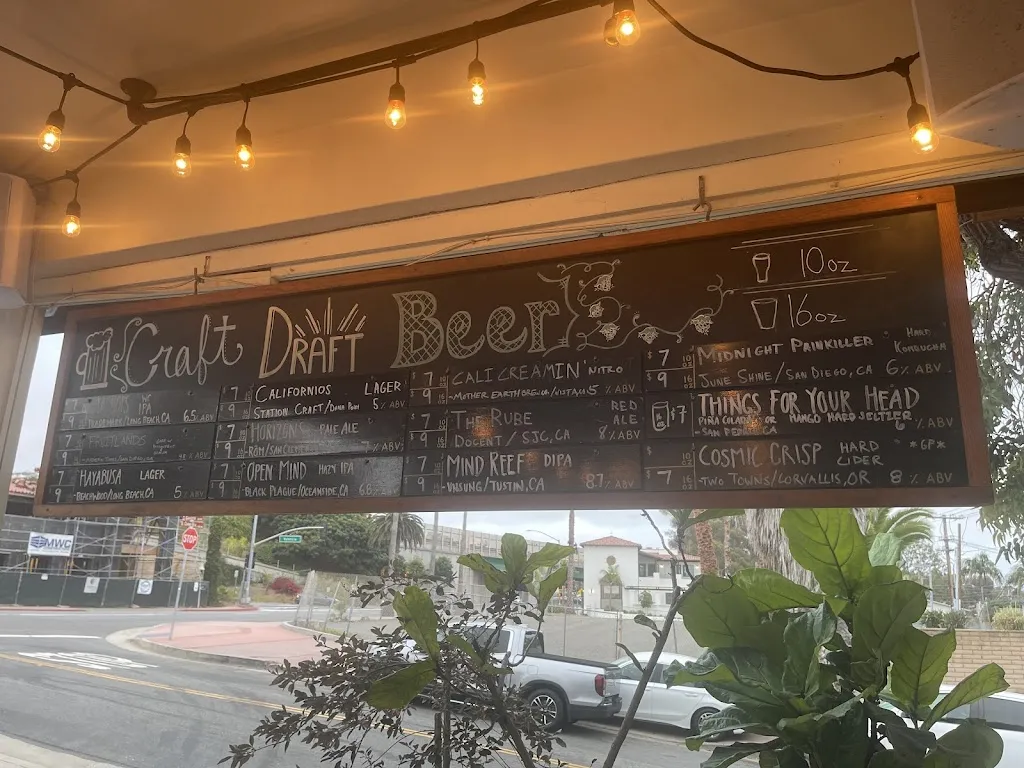 Craft DRAFT Beer
10oz
16oz
IPA
LONG BEACH, CA 6.5 % ABV
7
9
HAYABUSA LAGER
BEACHWOOD/LONG BEACH, CA 5 % ABV
7
9
CALIFORNIOS LAGER
STATION CRAFT/DANA POINT 5% ABV
7
9
HORIZONS PALE ALE
% ABV
7
9
OPEN MIND HAZY IPA
BLACK PLAGUE/OCEANSIDE, CA 6.8 %
7
9
CALI CREAMIN' NITRO
MOTHER EARTH BREW CO/VISTA 5 % ABV
7
9
THE RUBE RED ALE
DOCENT/SJC, CA 8 % ABV
7
9
MIND REEF DIPA
UNSUNG/TUSTIN, CA 8.7 % ABV
$7 10
9 16
MIDNIGHT PAINKILLER HARD KOMBUCHA
JUNE SHINE/SAN DIEGO, CA 6% ABV
$7
THINGS FOR YOUR HEAD
PINA COLADA OR MANGO HARD SELTZER
SAN PEDRO, CA % ABV
7
COSMIC CRISP HARD CIDER *GF*
TWO TOWNS/CORVALLIS, OR 8 % ABV
MWC
STOP